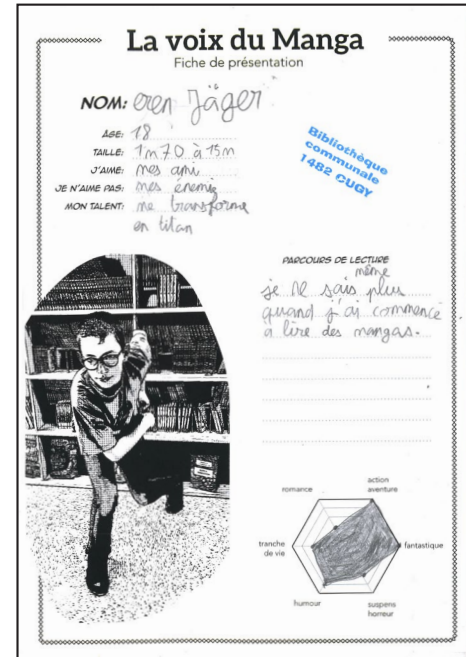 La voix du Manga
Fiche de présentation
NOM: eren Jäger
ÂGE: 18
TAILLE: 1m70 à 15m
J'AIME: mes ami
JE N'AIME PAS: mes énemie
MON TALENT: me transforme
en titan
Bibliothèque
communale
1482 CUGY
PARCOURS DE LECTURE
même
je ne sais plus
quand j'ai commencé
a lire des mangas.
romance
action
aventure
tranche
de vie
fantastique
humour
suspens
horreur